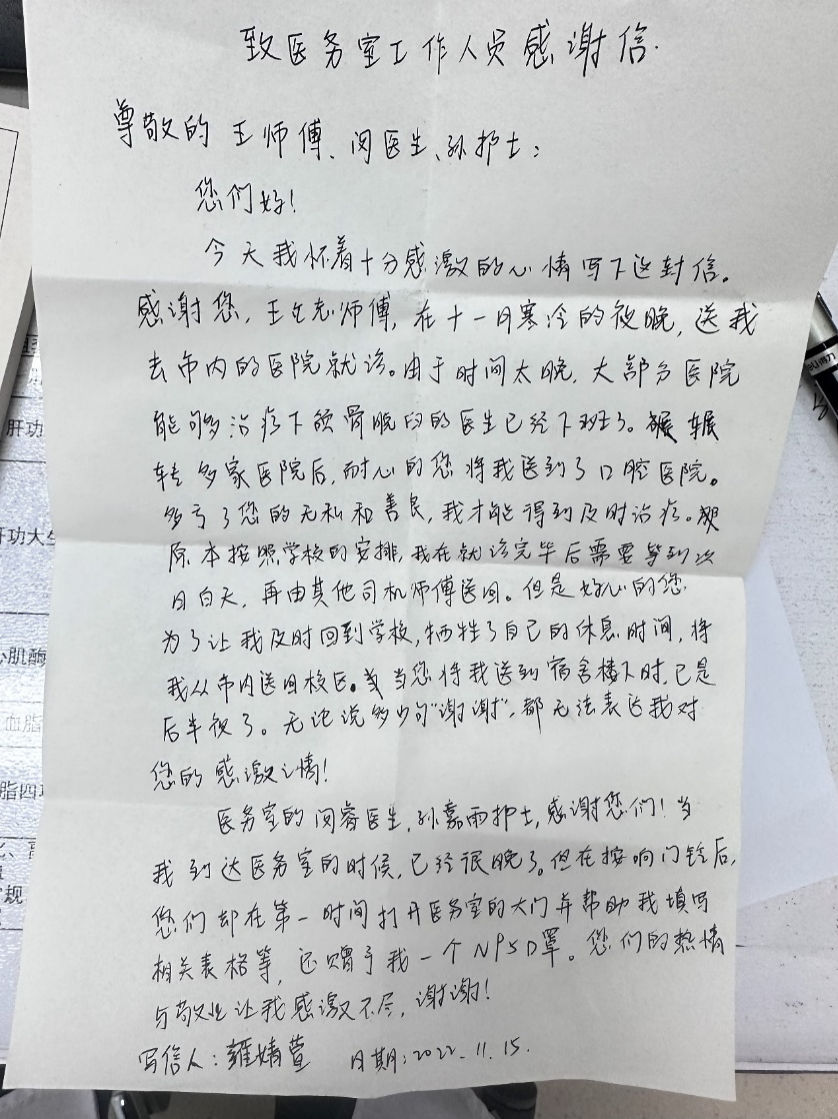 致医务室工作人员感谢信.
尊敬的王师傅、闵医生、孙护士:
您们好!
今天我怀着十分感激的心情写下这封信。
感谢您,王师傅,在十一月寒冷的夜晚,送我
去市内的医院就诊。由于时间太晚,大部分医院
能够治疗下颌骨脱臼的医生已经下班了。辗
转多家医院后,耐心的您将我送到了口腔医院。
多亏了您的无私和善良,我才能得到及时治疗。
原本按照学校的安排,我在就诊完毕后需要等到次
日白天,再由其他司机师傅送回。但是好心的您
为了让我及时回到学校,牺牲了自己的休息时间,将
我从市内送回校区。当您将我送到宿舍楼下时,已是
后半夜了。无论说多少句"谢谢",都无法表达我对
您的感激之情!
医务室的闵睿医生,孙嘉雨护士,感谢您们!当
我到达医务室的时候,已经很晚了。但在按响门铃后,
您们却在第一时间打开医务室的大门并帮助我填写
相关表格等,还赠予我一个N95口罩。您们的热情
与敬业让我感激不尽,谢谢!
写信人:雍婧萱 日期:2022.11.15.
肝功
肝功大生
心肌酶
血脂
脂四项